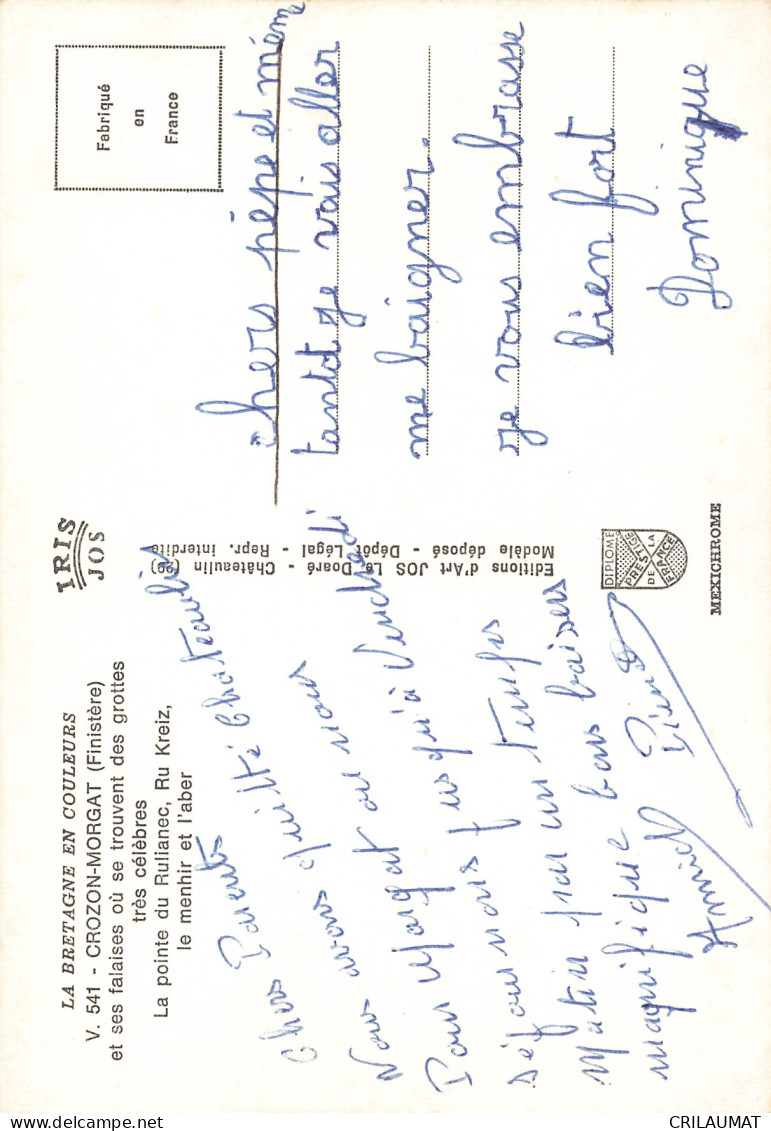 LA BRETAGNE EN COULEURS
V. 541 - CROZON-MORGAT (Finistère)
et ses falaises où se trouvent des grottes
très célèbres
La pointe du Rulianec, Ru Kreiz,
le menhir et l'aber
Chers Parents
Nous avons quitté Chateaulin
Pour Morgat ou nous
séjournons jusqu'à Vendredi
Matin par un temps
magnifique bons baisers
Annick Pierre
IRIS
JOS
Editions d'Art JOS Le Doaré - Châteaulin (29)
Modèle déposé - Dépôt Légal - Repr. interdite
Fabriqué
en
France
chers pépe et mémé
tantot je vais aller
me baigner.
je vous embrasse
bien fort
Dominique
DIPLOME
PRESTIGE
DE LA
FRANCE
MEXICHROME
CRILAUMAT